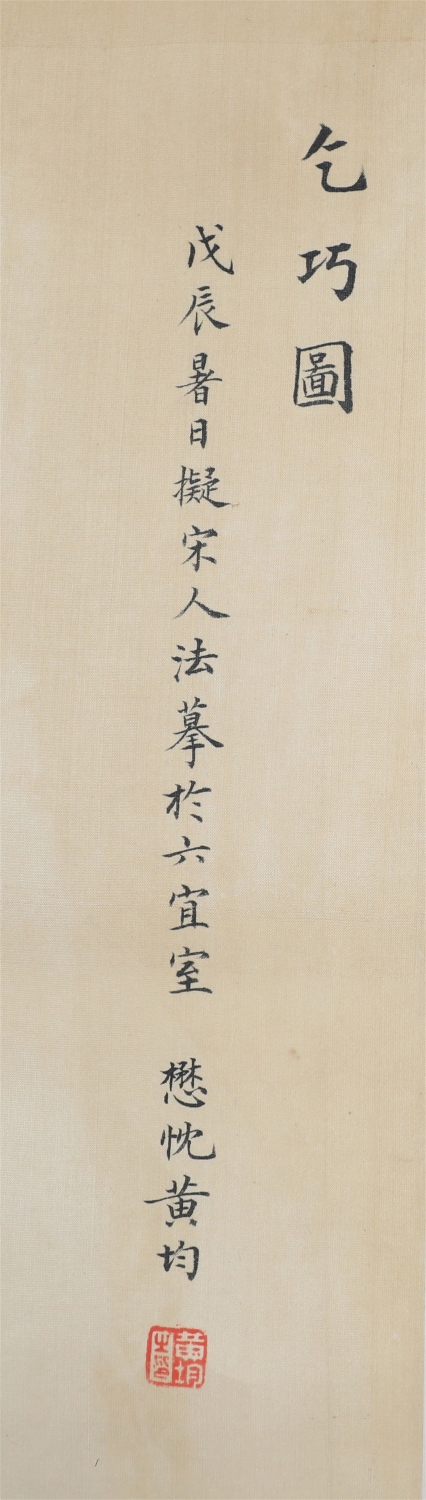 乞巧圖
戊辰暑日擬宋人法摹於六宜室　懋忱黄均
黄均